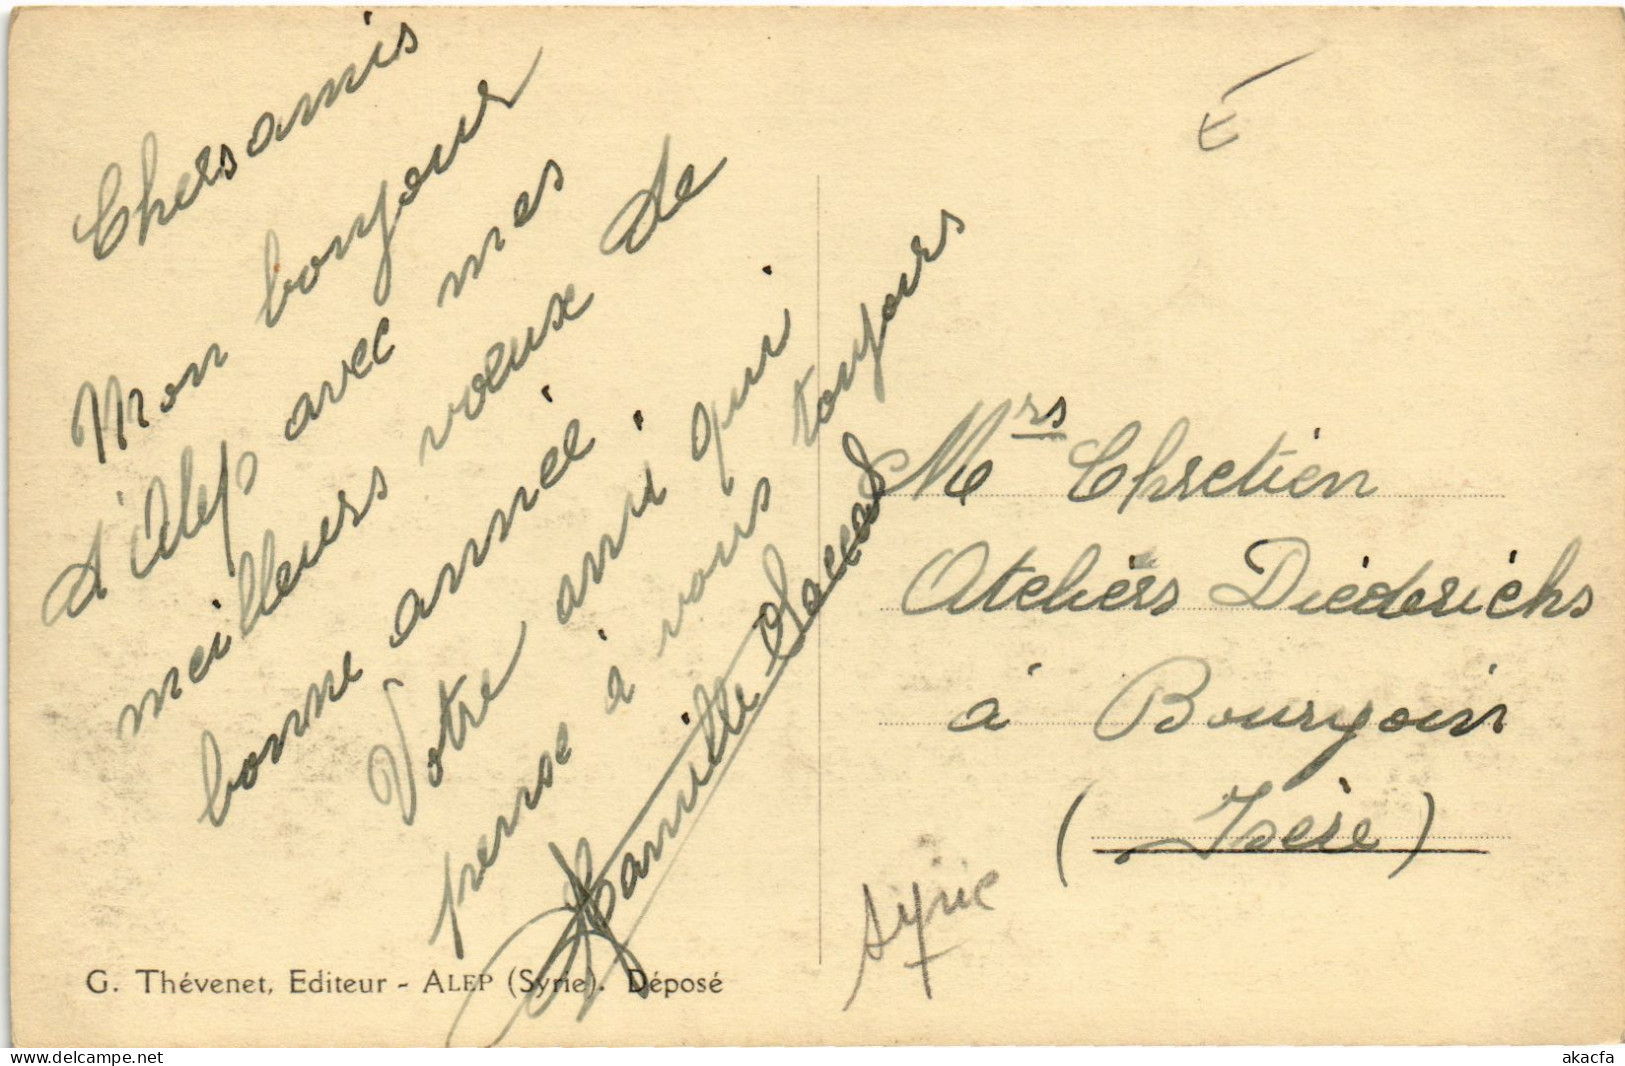 Chers amis
Mon bonjour
d'Alep avec mes
meilleurs voeux de
bonne année.
Votre ami qui
pense à vous toujours
Camille
G. Thévenet, Editeur - ALEP (Syrie). Déposé
Mrs Chretien
Ateliers Diederichs
à Bourgoin
(Isère)
Syrie
www.delcampe.net
akacfa